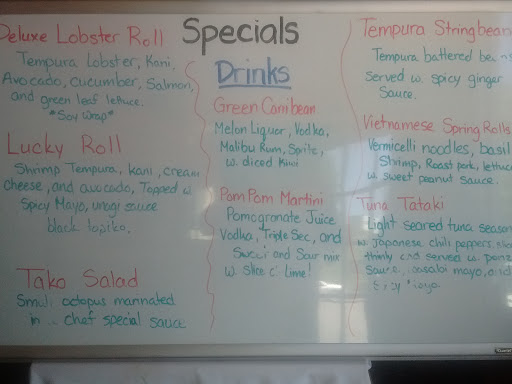 Specials
Deluxe Lobster Roll
Tempura Lobster, Kani,
Avocado, cucumber, Salmon,
and green leaf lettuce.
*Soy wrap*
Lucky Roll
Shrimp Tempura, kani, cream
cheese, and avocado, Topped w.
Spicy Mayo, unagi sauce
black topiko.
Tako Salad
Small octopus marinated
in chef special sauce
Drinks
Green Carribean
Melon Liquor, Vodka,
Malibu Rum, Sprite,
w. diced Kiwi
Pom Pom Martini
Pomogronate Juice
Vodka, Triple Sec, and
Sweet and Sour mix
w. Slice of Lime!
Tempura Stringbean
Tempura battered beans
Served w. spicy ginger
Sauce.
Vietnamese Spring Rolls
Vermicelli noodles, basil
Shrimp, Roast pork, lettuce
w. sweet peanut sauce.
Tuna Tataki
Light seared tuna season
w. Japanese chili peppers,
thinly and served w. ponzu
Sauce, wasabi mayo, and
spicy mayo.